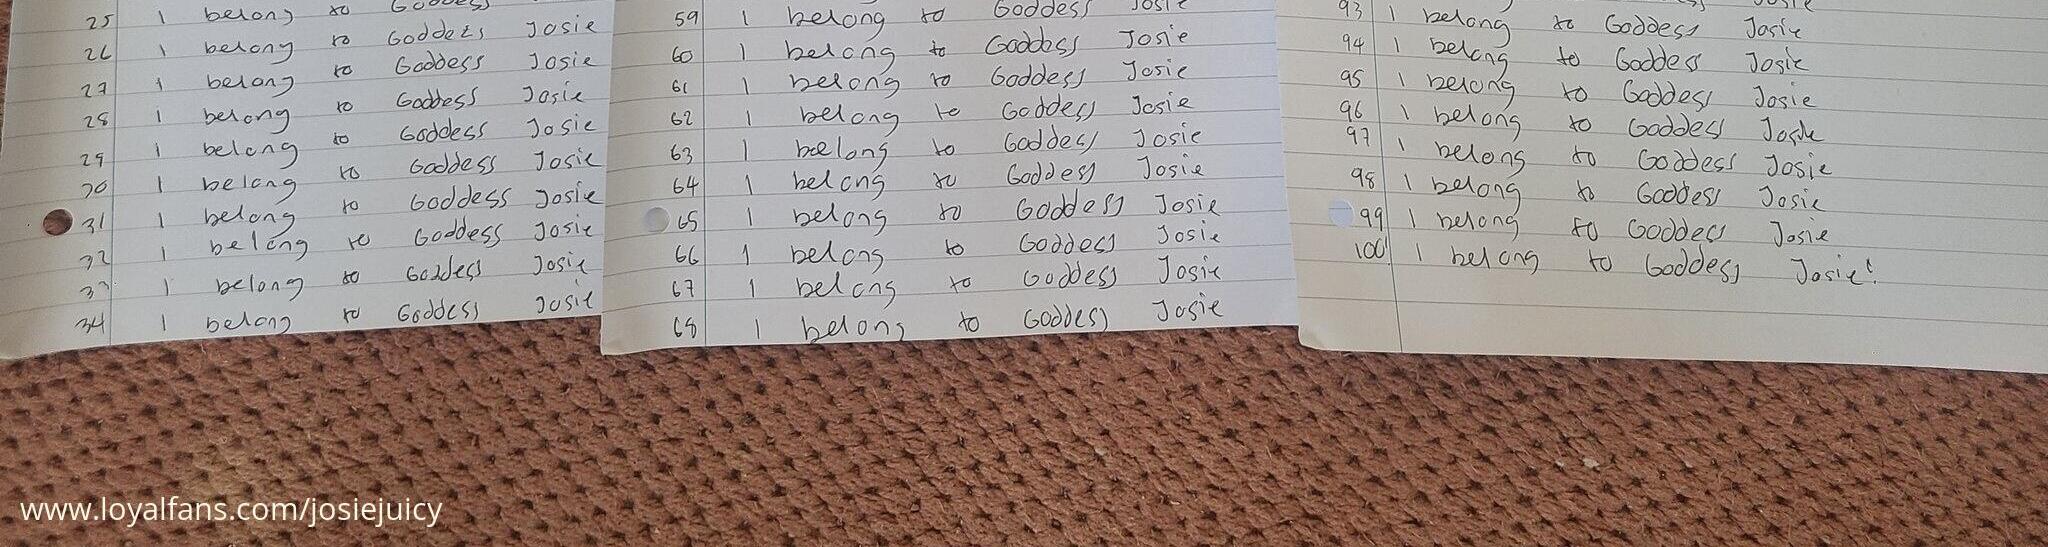 25 I belong to Goddess
26 I belong to Goddess Josie
27 I belong to Goddess Josie
28 I belong to Goddess Josie
29 I belong to Goddess Josie
30 I belong to Goddess Josie
31 I belong to Goddess Josie
32 I belong to Goddess Josie
33 I belong to Goddess Josie
34 I belong to Goddess Josie
59 I belong to Goddess Josie
60 I belong to Goddess Josie
61 I belong to Goddess Josie
62 I belong to Goddess Josie
63 I beelong to Goddess Josie
64 I belong to Goddess Josie
65 I belong to Goddess Josie
66 I belong to Goddess Josie
67 I belong to Goddess Josie
68 I belong to Goddess Josie
93 I belong to Goddess Josie
94 I belong to Goddess Josie
95 I belong to Goddess Josie
96 I belong to Goddess Josie
97 I belong to Goddess Josie
98 I belong to Goddess Josie
99 I belong to Goddess Josie
100! I belong to Goddess Josie!
www.loyalfans.com/josiejuicy